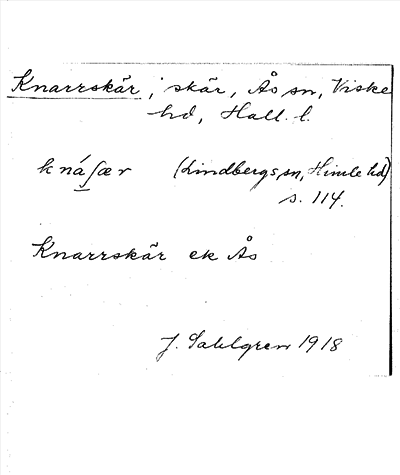 Knarrskär, skär, Ås sn, Viske
hd, Hall. l.
knáʃær (Lindbergs sn, Himle hd)
s. 114.
Knarrskär ek Ås
J. Sahlgren 1918